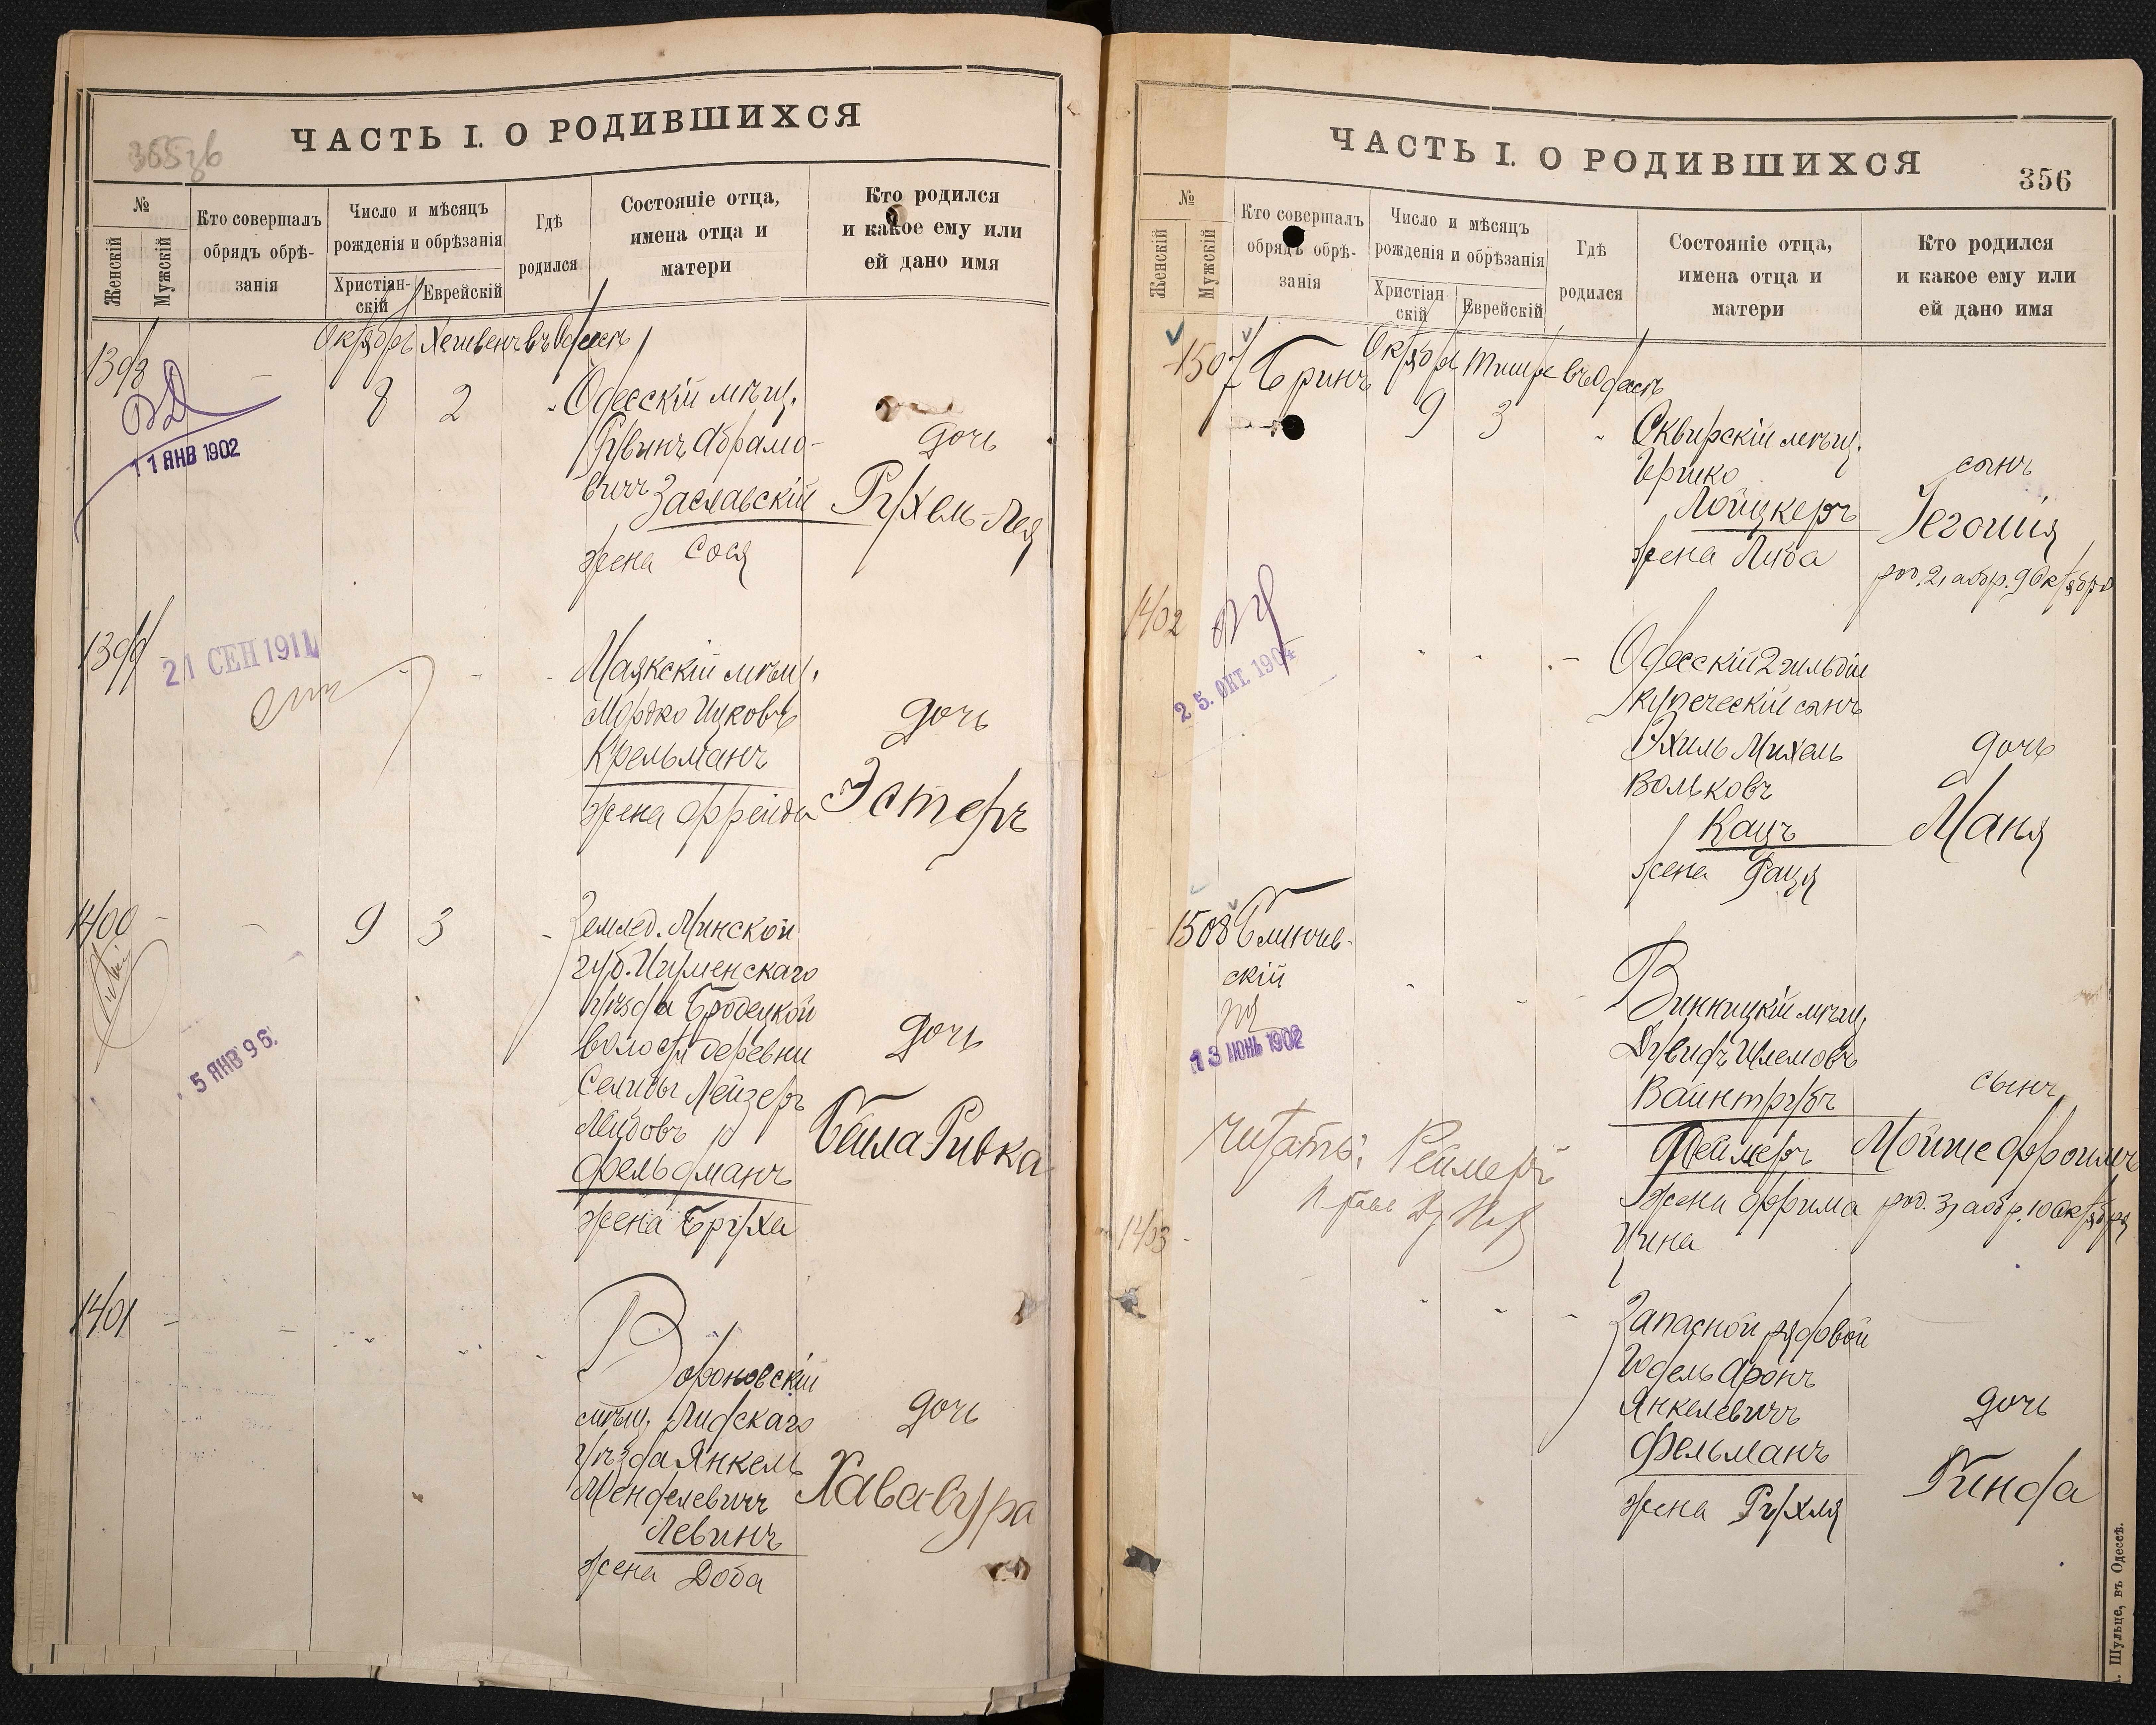 355 об
ЧАСТЬ I. О РОДИВШИХСЯ
№
Женскій
Мужскій
Кто совершалъ
обрядъ обрѣ-
занія
Число и мѣсяцъ
рожденія и обрѣзанія
Христіан-
скій
Еврейскій
Гдѣ
родился
Состояніе отца,
имена отца и
матери
Кто родился
и какое ему или
ей дано имя
Октябрь Хешвенъ въ Одессѣ
1398 - 8 2 " Одесскій мѣщ.
11 ЯНВ 1902
Рувинъ Абрамо-
вичъ Заславскій
жена Сося
дочь
Рухель-Лея
1399 -
21 СЕН 1911
Маякскій мѣщ.
Мордко Ицковъ
Крельманъ
жена Фрейда
дочь
Эстеръ
1400 - - 9 3 "
5 ЯНВ 96.
Землед. Минской
губ. Игуменскаго
уѣзда Бродецкой
волости деревни
Селибы Лейзеръ
Лейбовъ
Фельдманъ
жена Бруха
дочь
Бейла Ривка
1401 - -
Вороновскій
мѣщ. Лидскаго
уѣзда Янкель
Менделевичъ
Левинъ
жена Доба
дочь
Хава-Сура
ЧАСТЬ I. О РОДИВШИХСЯ
356
№
Женскій
Мужскій
Кто совершалъ
обрядъ обрѣ-
занія
Число и мѣсяцъ
рожденія и обрѣзанія
Христіан
скій
Еврейскій
Гдѣ
родился
Состояніе отца,
имена отца и
матери
Кто родился
и какое ему или
ей дано имя
1507 Бринъ Октября Тишре въ Одессѣ
9 3 "
Сквирскій мѣщ.
Гершко
Лойцкеръ
жена Люба
сынъ
Іегошія
род. 2, а обр. 9 Октября
1402
25. ОКТ. 1904
Одесскій 2 гильдіи
купеческій сынъ
Эхиль Михель
Вольковъ
Кацъ
жена Фаця
дочь
Маня
1508 Блюмив-
скій
13 ИЮНЬ 1902
Винницкій мѣщ.
Дувидъ Шлемовъ
Вайнтрубъ
Реймеръ
жена Фрима
Цина
сынъ
Мойше Фроимъ
род. 3, а обр. 10 Октября
Читать: Реймеръ
1403 -
Запасной рядовой
Годель Аронъ
Янкелевичъ
Фельманъ
жена Рухля
дочь
Гинда
. Шульце, въ Одессѣ.